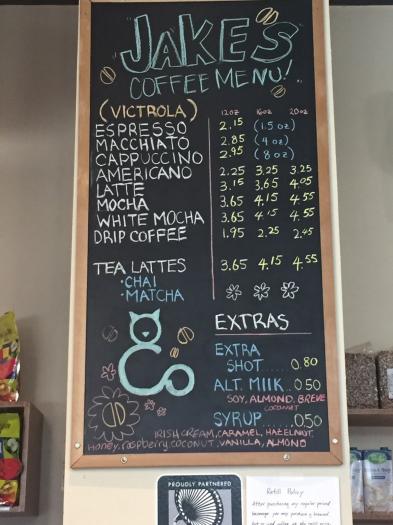 "JAKE'S"
COFFEE MENU!
(VICTROLA) 12 oz 16 oz 20 oz
ESPRESSO 2.15 (1.5 oz)
MACCHIATO 2.85 (4 oz)
CAPPUCCINO 2.95 (8 oz)
AMERICANO 2.25 3.25 3.25
LATTE 3.15 3.65 4.05
MOCHA 3.65 4.15 4.55
WHITE MOCHA 3.65 4.15 4.55
DRIP COFFEE 1.95 2.25 2.45
TEA LATTES 3.65 4.15 4.55
• CHAI
• MATCHA
EXTRAS
EXTRA
SHOT.....0.80
ALT. MILK..0.50
SOY, ALMOND, BREVE
COCONUT
SYRUP.....0.50
IRISH CREAM, CARAMEL, HAZELNUT,
Honey, raspberry, coconut, VANILLA, ALMOND
PROUDLY PARTNERED
Refill Policy
After purchasing any regular priced